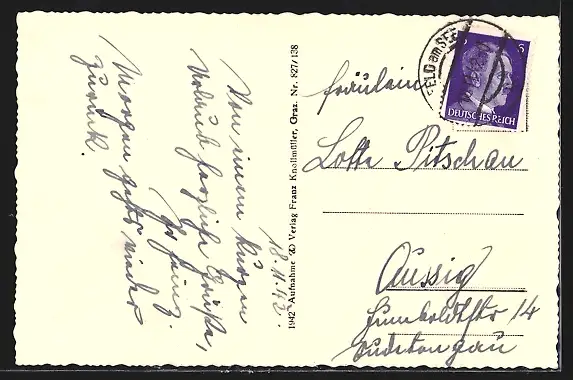 Von einem kurzen
Urlaub herzliche Grüße,
Ihr Heinz.
Morgen geht's wieder
zurück.
18.11.42.
1942 Aufnahme u. Verlag Franz Knollmüller, Graz. Nr. 827/138
FELD am SEE
6
DEUTSCHES REICH
Fräulein
Lotte Pitschau
Aussig
Humboldtstr 14
Sudetengau